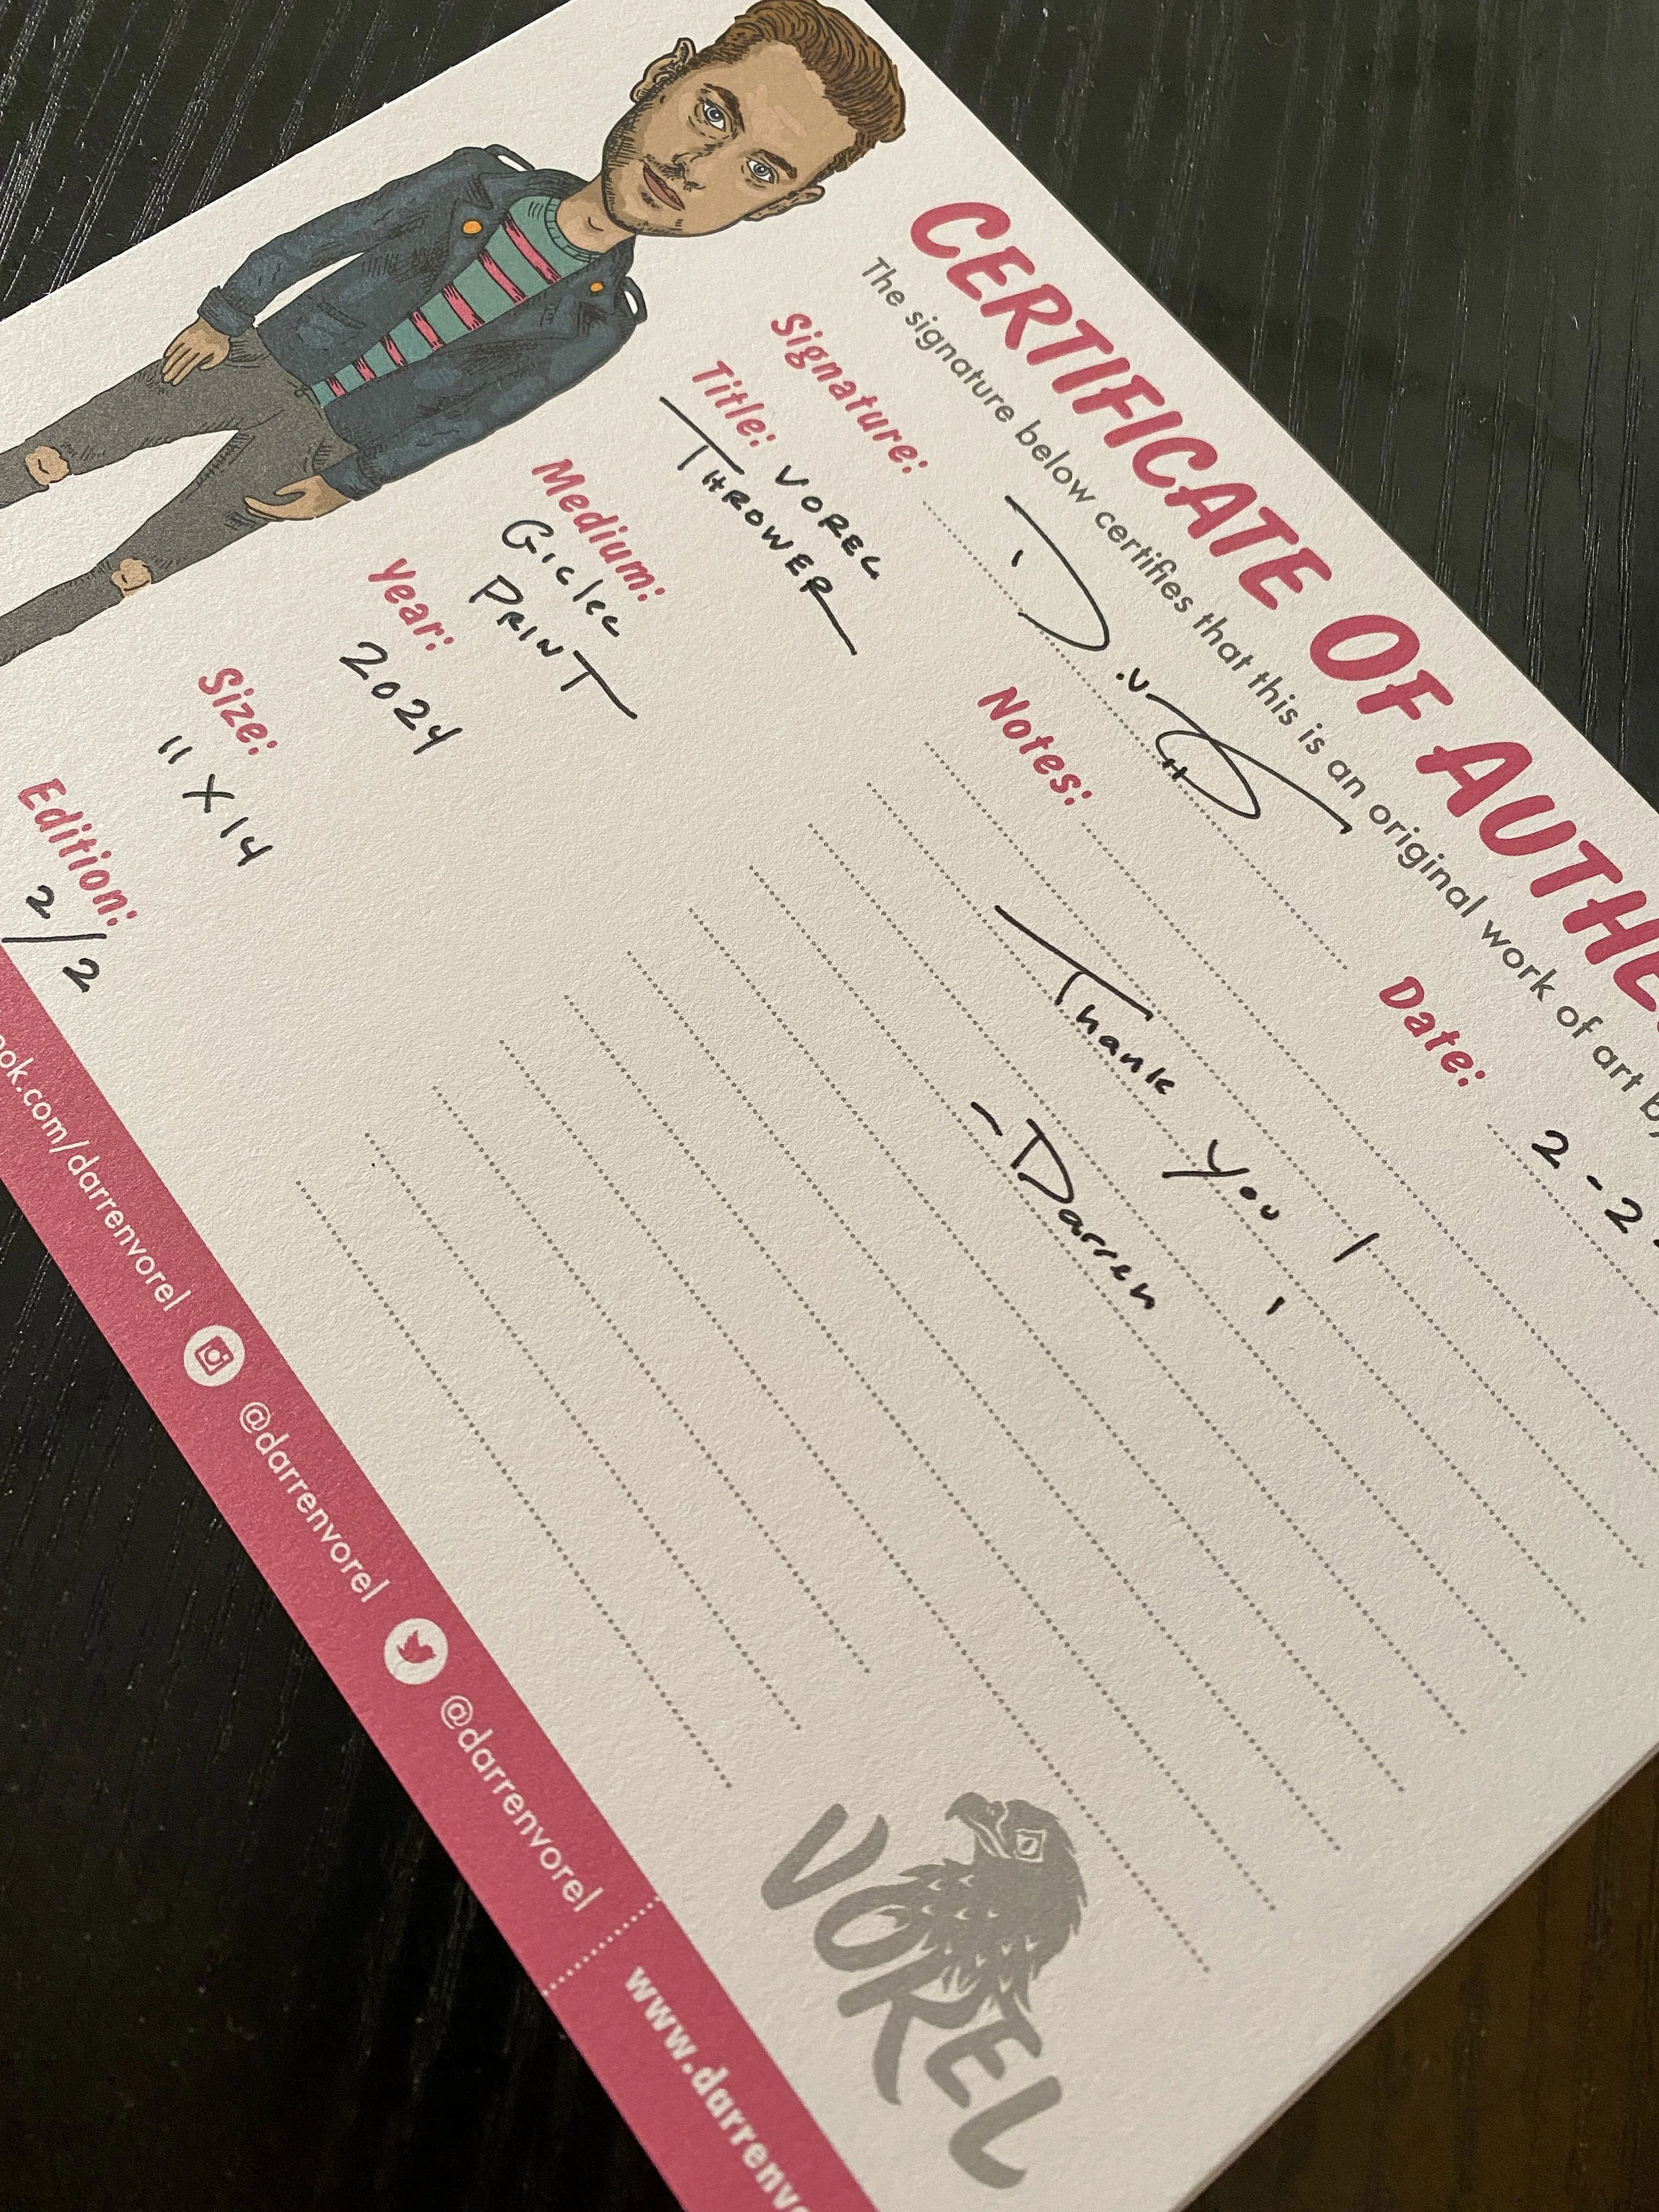 CERTIFICATE OF AUTHE
The signature below certifies that this is an original work of art by
Signature: D.V
Date: 2-2
Title: VOREL
THROWER
Medium:
Giclee
PRINT
Year:
2024
Size:
11 X 14
Edition:
2/2
Notes:
Thank you!
-Darren
VOREL
ook.com/darrenvorel @darrenvorel @darrenvorel www.darrenvo